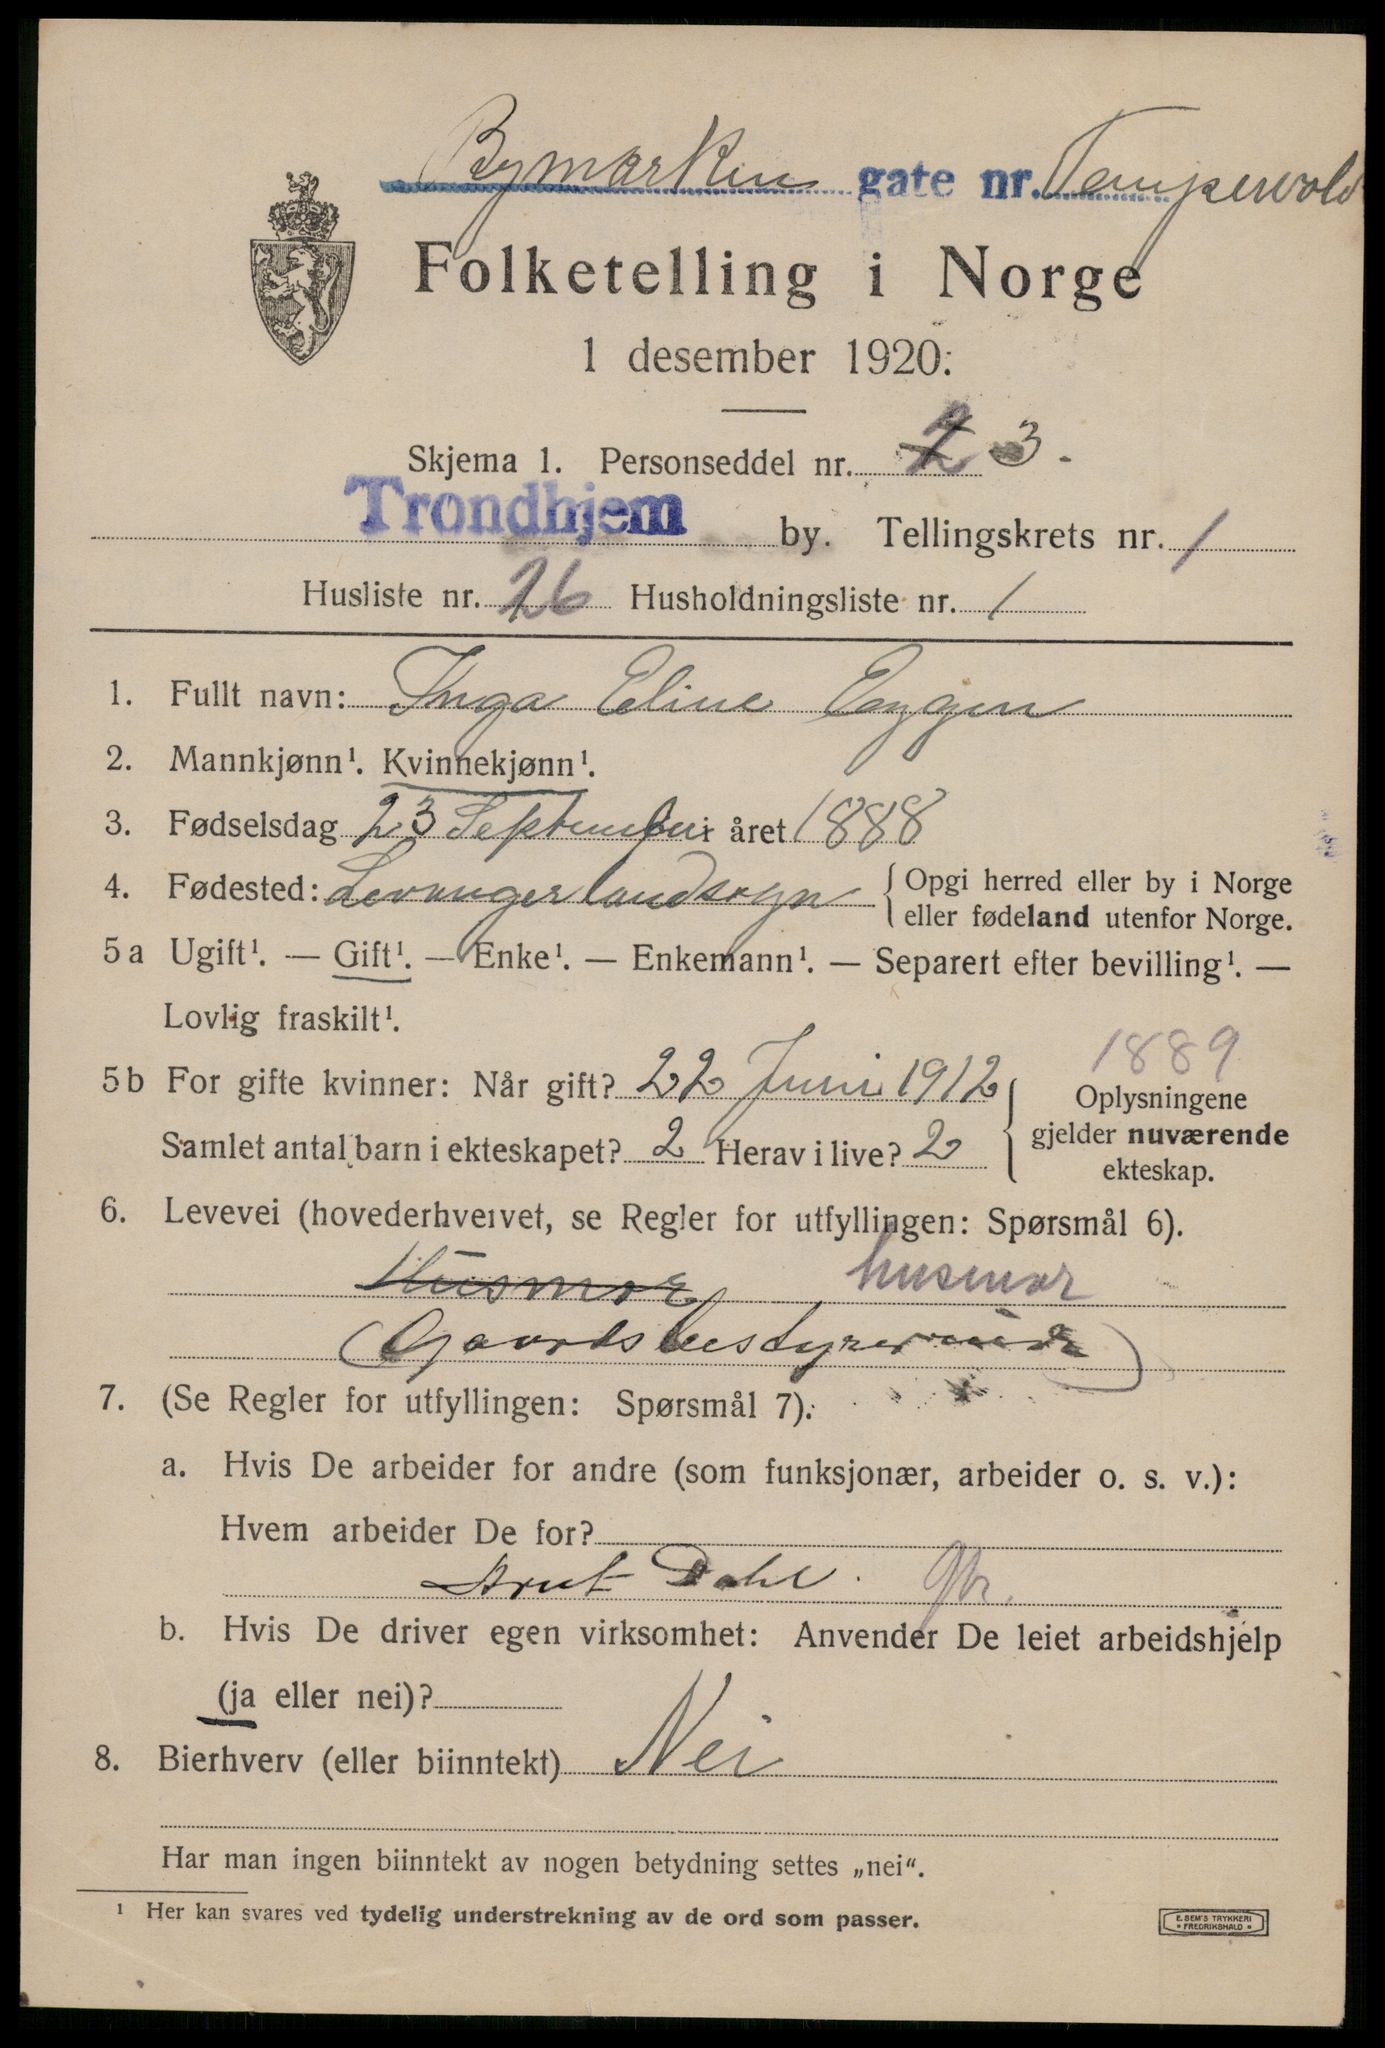 Bymarken gate nr. Tempervold
Folketelling i Norge
1 desember 1920.
Skjema 1. Personseddel nr. 2 3.
Trondhjem by. Tellingskrets nr. 1
Husliste nr. 26 Husholdningsliste nr. 1
1. Fullt navn: Inga Eline Eggen
2. Mannkjønn¹. Kvinnekjønn¹.
3. Fødselsdag 23 September året 1888
4. Fødested: Levanger landsogn { Opgi herred eller by i Norge
eller fødeland utenfor Norge.
5a Ugift¹. — Gift¹. — Enke¹. — Enkemann¹. — Separert efter bevilling¹. —
Lovlig fraskilt¹.
1889
5b For gifte kvinner: Når gift? 22 Juni 1912 } Oplysningene
gjelder nuværende
ekteskap.
Samlet antal barn i ekteskapet? 2 Herav i live? 2
6. Levevei (hovederhvervet, se Regler for utfyllingen: Spørsmål 6).
Husmor husmor
(Gaardsbestyrerinde)
7. (Se Regler for utfyllingen: Spørsmål 7).
a. Hvis De arbeider for andre (som funksjonær, arbeider o. s. v.):
Hvem arbeider De for?
Dahl. gbr.
b. Hvis De driver egen virksomhet: Anvender De leiet arbeidshjelp
(ja eller nei)?
8. Bierhverv (eller biinntekt) Nei
Har man ingen biinntekt av nogen betydning settes „nei“.
¹ Her kan svares ved tydelig understrekning av de ord som passer.
E. SEM'S TRYKKERI
* FREDRIKSHALD *